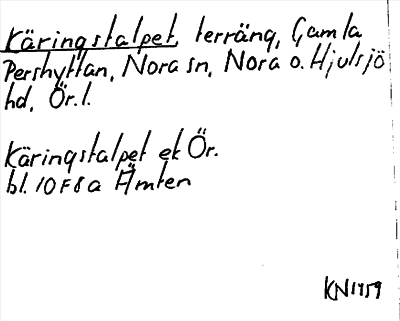 Käringstalpet, terräng, Gamla
Pershyttan, Nora sn, Nora o. Hjulsjö
hd, Ör. l.
Käringstalpet ek Ör.
bl. 10F8a Åmten
KN1959